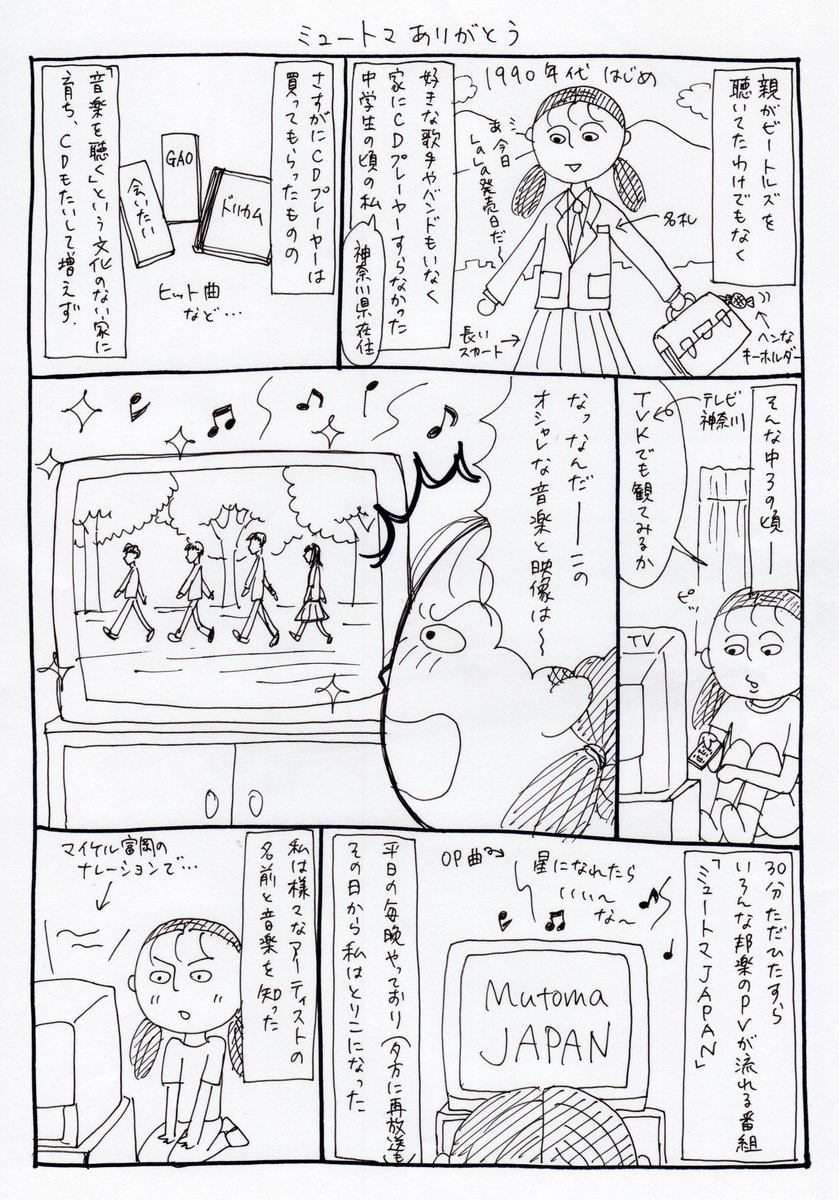 ミュートマ ありがとう
親がビートルズを
聴いてたわけでもなく
1990年代 はじめ
あ、今日
LaLa発売日だ〜
名札
ヘンな
キーホルダー
長い
スカート
好きな歌手やバンドもいなく
家にCDプレーヤーすらなかった
中学生の頃の私
神奈川県在住
さすがにCDプレーヤーは
買ってもらったものの
GAO
会いたい
ドリカム
ヒット曲
など…
「音楽を聴く」という文化のない家に
育ち、CDもたいして増えず、
そんな中3の頃―
テレビ
神奈川
TVKでも観てみるか
ピッ
TV
なっなんだ――この
オシャレな音楽と映像は〜
30分ただひたすら
いろんな邦楽のPVが流れる番組
「ミュートマJAPAN」
OP曲
星になれたら
いい〜
な〜
Mutoma
JAPAN
平日の毎晩やっており(夕方に再放送も)
その日から私はとりこになった
私は様々なアーティストの
名前と音楽を知った
マイケル富岡の
ナレーションで…